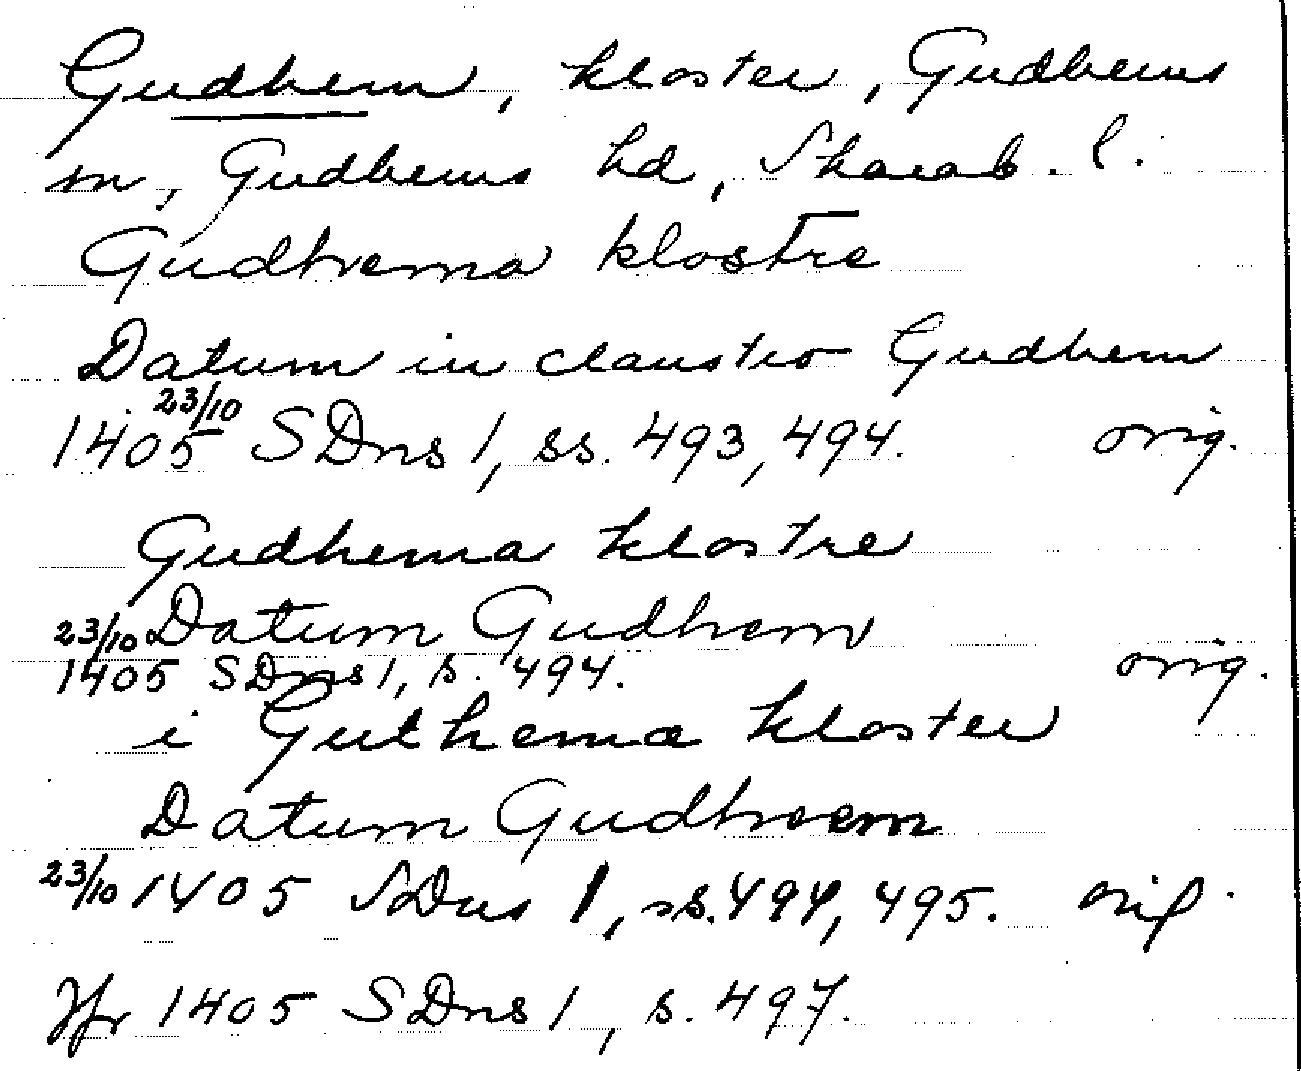 Gudhem, kloster, Gudhems
sn, Gudhems hd, Skarab. l.
Gudhema klostre
Datum in claustro Gudhem
23/10
1405 SDns 1, ss. 493, 494. orig.
Gudhema klostre
Datum Gudhem
23/10 1405 SDns 1, s. 494. orig.
i Guthema kloster
Datum Gudheem
23/10 1405 SDns 1, ss. 494, 495. orig.
Jfr 1405 SDns 1, s. 497.